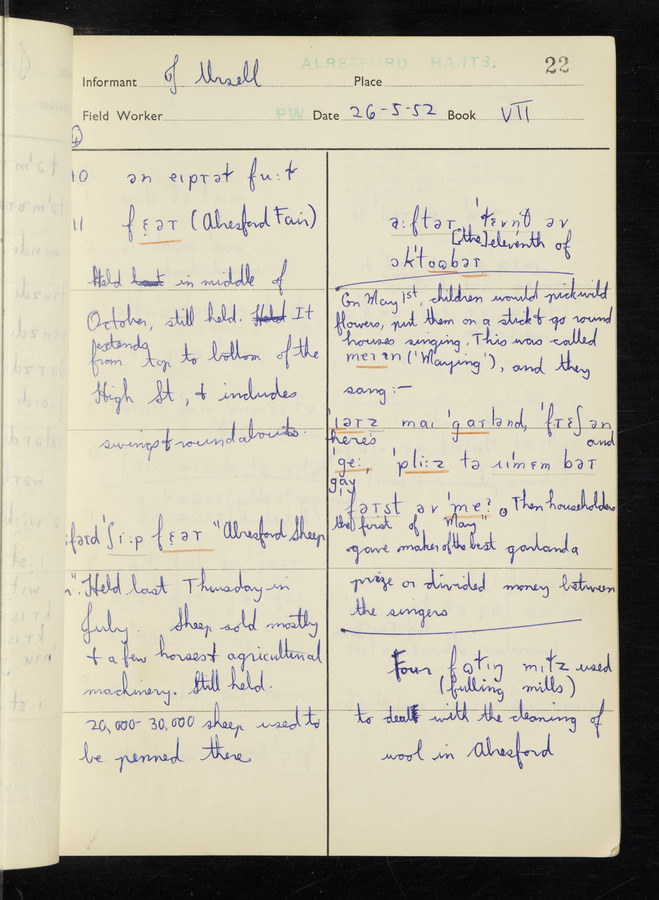 ALRESFORD HANTS.
22
Informant J Ursell Place
Field Worker PW Date 26-5-52 Book VII
4
10 ən eɪprəɪ fu:ɫ
11 fɛər (Alresford Fair)
Held last in middle of
October, still held. Held It
extends
from top to bottom of the
High St, & includes
swings & roundabouts.
fərd ʃi:p fɛər "Alresford Sheep
". Held last Thursday in
July. Sheep sold mostly
& a few horses & agricultural
machinery. Still held.
20,000-30,000 sheep used to
be penned there
a:ftər əv
[the] eleventh of
ɔktoobər
On May 1st, children would pick wild
flowers, put them on a stick & go round
houses singing. This was called
meɪɪn ('Maying'), and they
sang:-
ɪərz maɪ 'garlənd, 'frɛʃ ən
here's and
'ge:, 'pli:z tə rɪmem bər
gay
fərst əv 'me: Then householders
the first of May"
gave maker of the best garland a
prize or divided money between
the singers
Four mɪɫz used
(fulling mills)
to deal with the cleaning of
wool in Alresford